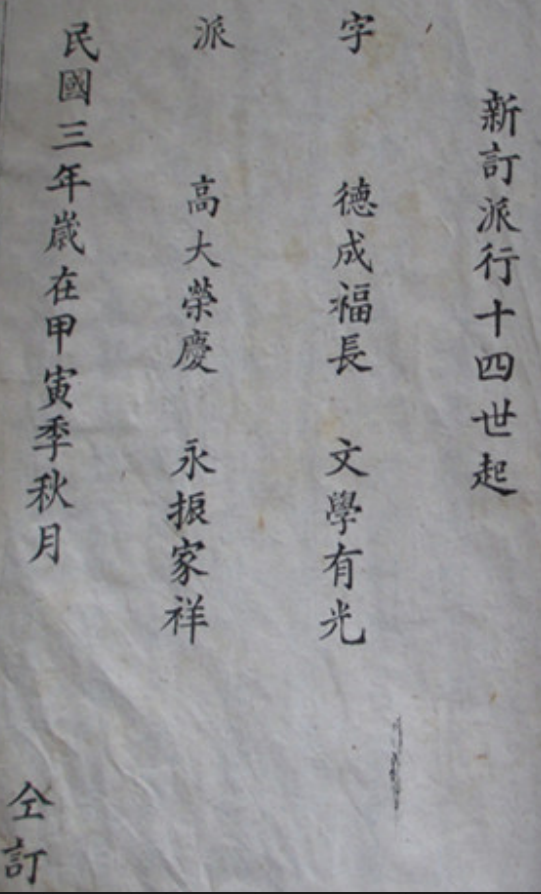 新訂派行十四世起
字 德成福長 文學有光
派 高大榮慶 永振家祥
民國三年歲在甲寅季秋月 仝訂